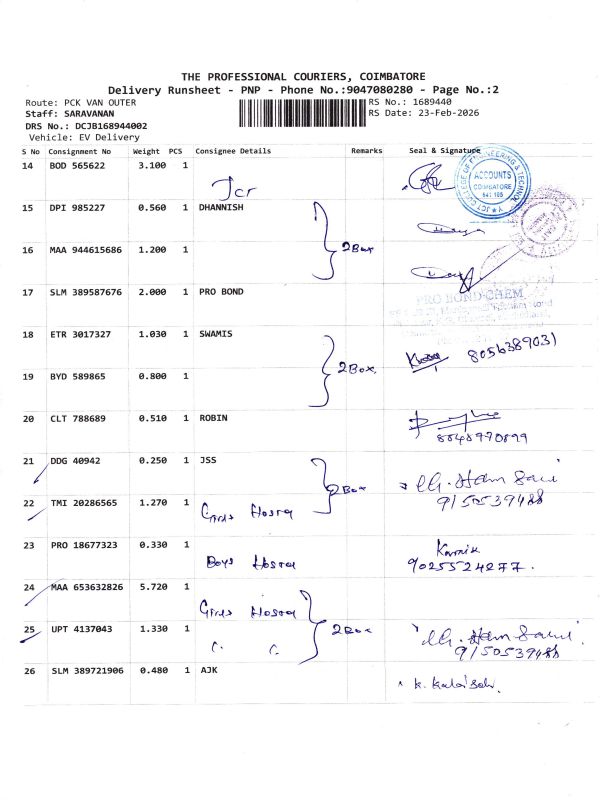 THE PROFESSIONAL COURIERS, COIMBATORE
Delivery Runsheet - PNP - Phone No.:9047080280 - Page No.:2
Route: PCK VAN OUTER
RS No.: 1689440
Staff: SARAVANAN
RS Date: 23-Feb-2026
DRS No.: DCJB168944002
Vehicle: EV Delivery
S No Consignment No Weight PCS Consignee Details Remarks Seal & Signature
14 BOD 565622 3.100 1
Jcr
ACCOUNTS
COIMBATORE
641 105
15 DPI 985227 0.560 1 DHANNISH
2 Box
16 MAA 944615686 1.200 1
17 SLM 389587676 2.000 1 PRO BOND
PRO BOND CHEM
18 ETR 3017327 1.030 1 SWAMIS
2 Box
8056389031
19 BYD 589865 0.800 1
20 CLT 788689 0.510 1 ROBIN
21 DDG 40942 0.250 1 JSS
2 Box
22 TMI 20286565 1.270 1
Girls Hostel
9150539488
23 PRO 18677323 0.330 1
Boys Hostel
9025524277.
24 MAA 653632826 5.720 1
Girls Hostel
2 Box
25 UPT 4137043 1.330 1
9150539488
26 SLM 389721906 0.480 1 AJK